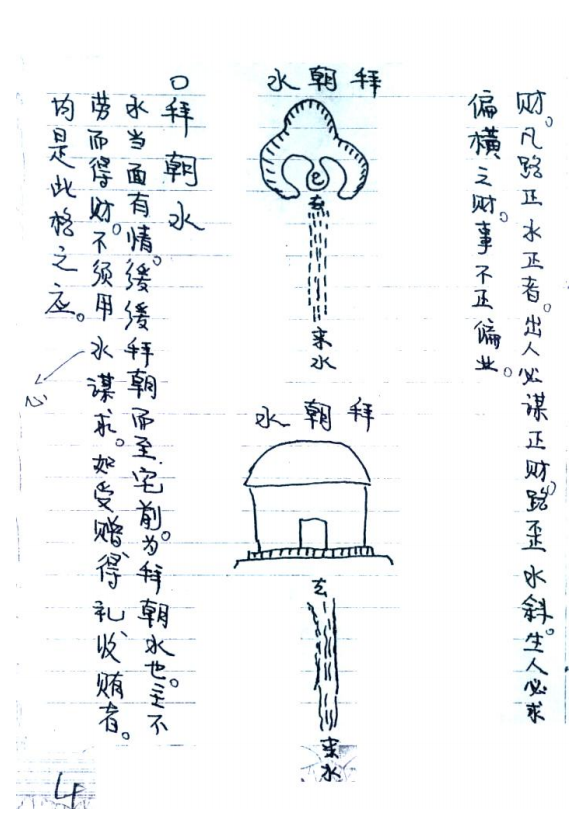 财。凡路正水正者。出人必谋正财。路歪水斜。生人必求
偏横之财。事不正偏业。
拜朝水
玄
来水
拜朝水
玄
来水
○拜朝水
水当面有情。缓缓拜朝而至宅前。为拜朝水也。主不
劳而得财。不须用水谋求。如受赠、得礼、收贿者。
心
均是此格之应。
4